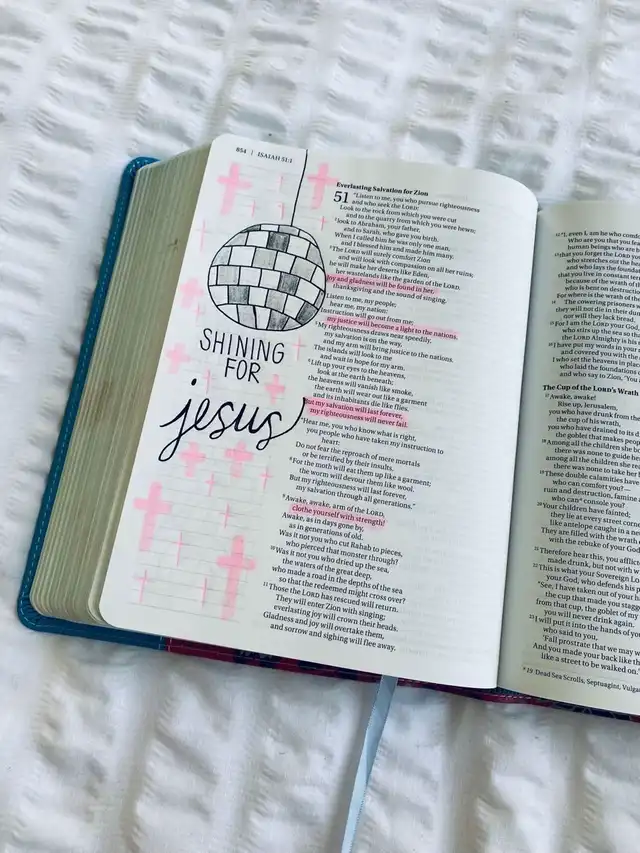 654 | ISAIAH 51:1
SHINING
FOR
jesus
Everlasting Salvation for Zion
51 "Listen to me, you who pursue righteousness
and who seek the LORD:
Look to the rock from which you were cut
and to the quarry from which you were hewn;
2 look to Abraham, your father,
and to Sarah, who gave you birth.
When I called him he was only one man,
and I blessed him and made him many.
3 The LORD will surely comfort Zion
and will look with compassion on all her ruins;
he will make her deserts like Eden,
her wastelands like the garden of the LORD.
Joy and gladness will be found in her,
thanksgiving and the sound of singing.
Listen to me, my people;
hear me, my nation:
Instruction will go out from me;
my justice will become a light to the nations.
5 My righteousness draws near speedily,
my salvation is on the way,
and my arm will bring justice to the nations.
The islands will look to me
and wait in hope for my arm.
6 Lift up your eyes to the heavens,
look at the earth beneath;
the heavens will vanish like smoke,
the earth will wear out like a garment
and its inhabitants die like flies.
But my salvation will last forever,
my righteousness will never fail.
"Hear me, you who know what is right,
you people who have taken my instruction to
heart:
Do not fear the reproach of mere mortals
or be terrified by their insults.
8 For the moth will eat them up like a garment;
the worm will devour them like wool.
But my righteousness will last forever,
my salvation through all generations."
9 Awake, awake, arm of the LORD,
clothe yourself with strength!
Awake, as in days gone by,
as in generations of old.
Was it not you who cut Rahab to pieces,
who pierced that monster through?
10 Was it not you who dried up the sea,
the waters of the great deep,
who made a road in the depths of the sea
so that the redeemed might cross over?
11 Those the LORD has rescued will return.
They will enter Zion with singing;
everlasting joy will crown their heads.
Gladness and joy will overtake them,
and sorrow and sighing will flee away.
12 "I, even I, am he who comfo
Who are you that you fea
human beings who are
13 that you forget the LORD yo
who stretches out the he
and who lays the founda
that you live in constant te
because of the wrath of th
who is bent on destructio
For where is the wrath of th
14 The cowering prisoners w
they will not die in their dun
nor will they lack bread.
15 For I am the LORD your Go
who stirs up the sea so th
the LORD Almighty is his
16 I have put my words in your
and covered you with the
I who set the heavens in plac
who laid the foundations o
and who say to Zion, 'You
The Cup of the LORD's Wrath
17 Awake, awake!
Rise up, Jerusalem,
you who have drunk from the
the cup of his wrath,
you who have drained to its d
the goblet that makes peop
18 Among all the children she bo
there was none to guide he
among all the children she re
there was none to take her
19 These double calamities have
who can comfort you?—
ruin and destruction, famine a
who can console you?
20 Your children have fainted;
they lie at every street corne
like antelope caught in a ne
They are filled with the wrath
with the rebuke of your God
21 Therefore hear this, you afflicte
made drunk, but not with w
22 This is what your Sovereign Lo
your God, who defends his p
"See, I have taken out of your ha
the cup that made you stagg
from that cup, the goblet of my
you will never drink again.
23 I will put it into the hands of y
who said to you,
'Fall prostrate that we may w
And you made your back like th
like a street to be walked on."
19 Dead Sea Scrolls, Septuagint, Vulga